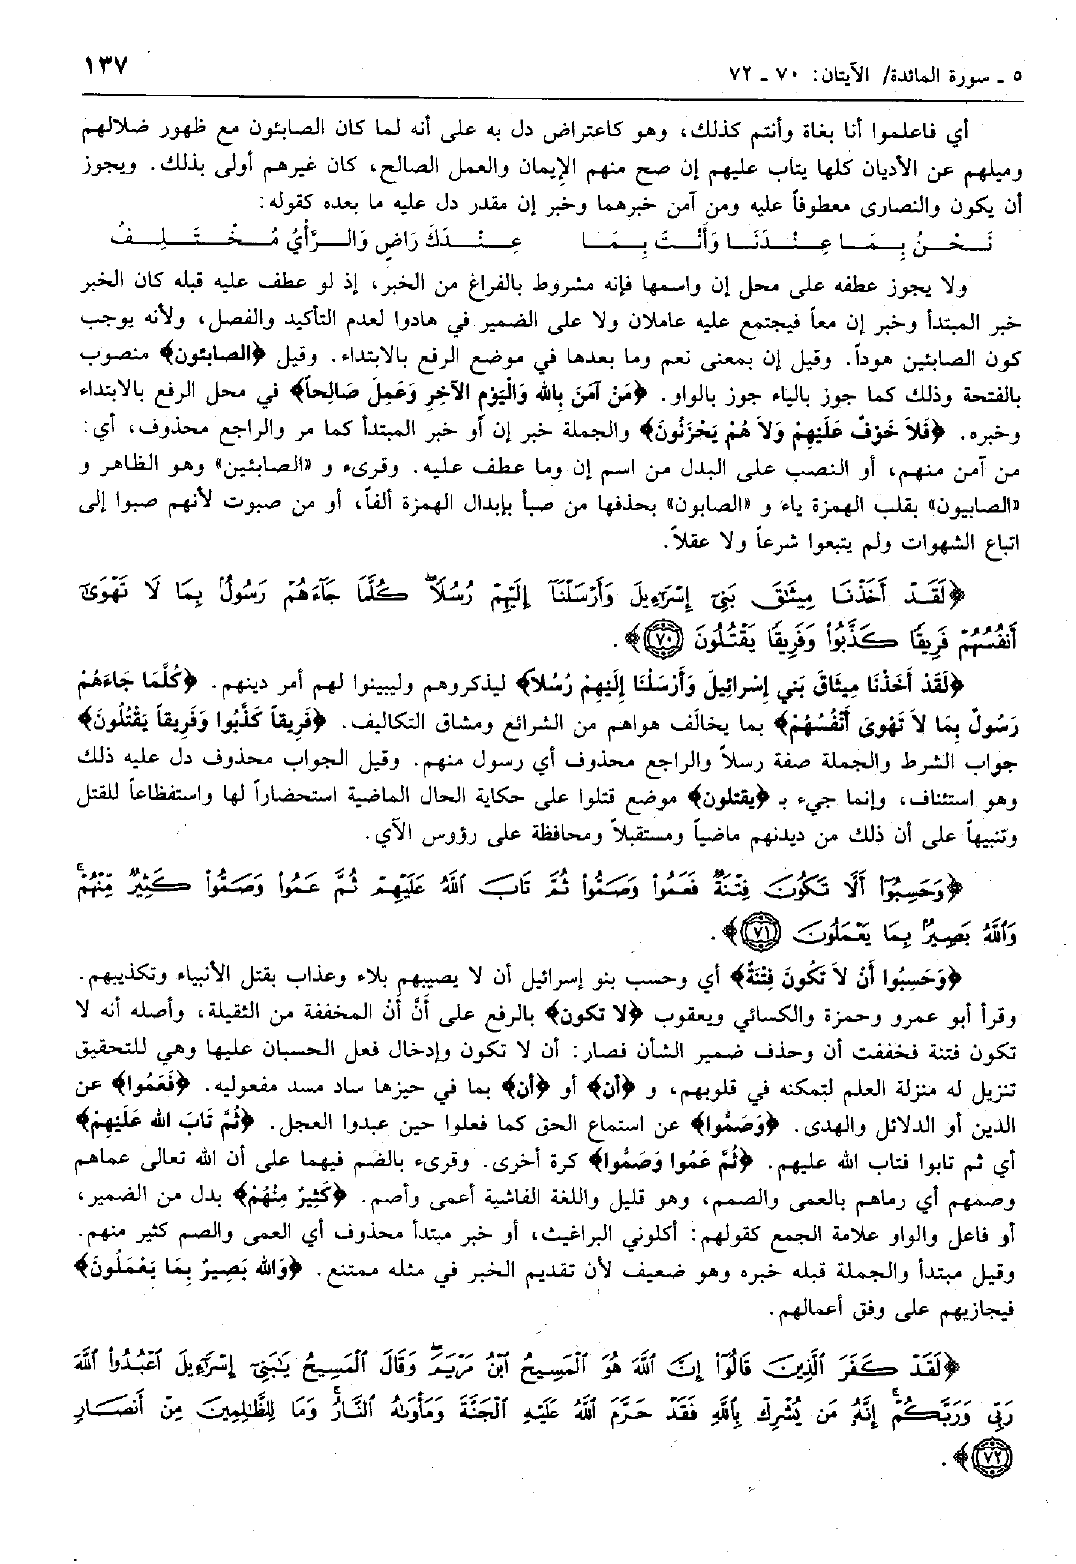 ٥ ـ سورة المائدة/ الآيتان: ٧٠ ـ ٧٢ ١٣٧
أي فاعلموا أنا بغاة وأنتم كذلك، وهو كاعتراض دل به على أنه لما كان الصابئون مع ظهور ضلالهم
وميلهم عن الأديان كلها يتاب عليهم إن صح منهم الإيمان والعمل الصالح، كان غيرهم أولى بذلك. ويجوز
أن يكون والنصارى معطوفاً عليه ومن آمن خبرهما وخبر إن مقدر دل عليه ما بعده كقوله:
نَـحْـنُ بِـمَـا عِـنْـدَنَـا وَأَنْـتَ بِـمَـا عِـنْـدَكَ رَاضٍ وَالـرَّأْيُ مُـخْـتَـلِـفُ
ولا يجوز عطفه على محل إن واسمها فإنه مشروط بالفراغ من الخبر، إذ لو عطف عليه قبله كان الخبر
خبر المبتدأ وخبر إن معاً فيجتمع عليه عاملان ولا على الضمير في هادوا لعدم التأكيد والفصل، ولأنه يوجب
كون الصابئين هوداً. وقيل إن بمعنى نعم وما بعدها في موضع الرفع بالابتداء. وقيل ﴿الصابئون﴾ منصوب
بالفتحة وذلك كما جوز بالياء جوز بالواو. ﴿مَنْ آمَنَ بِالله وَالْيَوْمِ الآخِرِ وَعَمِلَ صَالِحاً﴾ في محل الرفع بالابتداء
وخبره. ﴿فَلاَ خَوْفٌ عَلَيْهِمْ وَلاَ هُمْ يَحْزَنُونَ﴾ والجملة خبر إن أو خبر المبتدأ كما مر والراجع محذوف، أي:
من آمن منهم، أو النصب على البدل من اسم إن وما عطف عليه. وقرىء و «الصابئين» وهو الظاهر و
«الصابيون» بقلب الهمزة ياء و «الصابون» بحذفها من صبأ بإبدال الهمزة ألفاً، أو من صبوت لأنهم صبوا إلى
اتباع الشهوات ولم يتبعوا شرعاً ولا عقلاً.
﴿لَقَدْ أَخَذْنَا مِيثَٰقَ بَنِيٓ إِسْرَٰٓءِيلَ وَأَرْسَلْنَآ إِلَيْهِمْ رُسُلًاۖ كُلَّمَا جَآءَهُمْ رَسُولٌۢ بِمَا لَا تَهْوَىٰٓ
أَنفُسُهُمْ فَرِيقًا كَذَّبُوا۟ وَفَرِيقًا يَقْتُلُونَ ﴿٧٠﴾﴾.
﴿لَقَدْ أَخَذْنَا مِيثَاقَ بَنِي إِسْرائِيلَ وَأَرْسَلْنَا إِلَيْهِمْ رُسُلاً﴾ ليذكروهم وليبينوا لهم أمر دينهم. ﴿كُلَّمَا جَاءَهُمْ
رَسُولٌ بِمَا لاَ تَهْوىَ أَنْفُسُهُمْ﴾ بما يخالف هواهم من الشرائع ومشاق التكاليف. ﴿فَرِيقاً كَذَّبُوا وَفَرِيقاً يَقْتُلُونَ﴾
جواب الشرط والجملة صفة رسلاً والراجع محذوف أي رسول منهم. وقيل الجواب محذوف دل عليه ذلك
وهو استئناف، وإنما جيء بـ ﴿يقتلون﴾ موضع قتلوا على حكاية الحال الماضية استحضاراً لها واستفظاعاً للقتل
وتنبيهاً على أن ذلك من ديدنهم ماضياً ومستقبلاً ومحافظة على رؤوس الآي.
﴿وَحَسِبُوٓا۟ أَلَّا تَكُونَ فِتْنَةٌ فَعَمُوا۟ وَصَمُّوا۟ ثُمَّ تَابَ ٱللَّهُ عَلَيْهِمْ ثُمَّ عَمُوا۟ وَصَمُّوا۟ كَثِيرٌ مِّنْهُمْۚ
وَٱللَّهُ بَصِيرٌۢ بِمَا يَعْمَلُونَ ﴿٧١﴾﴾.
﴿وَحَسِبُوا أَنْ لاَ تَكُونَ فِتْنَةٌ﴾ أي وحسب بنو إسرائيل أن لا يصيبهم بلاء وعذاب بقتل الأنبياء وتكذيبهم.
وقرأ أبو عمرو وحمزة والكسائي ويعقوب ﴿لا تكون﴾ بالرفع على أَنَّ أَن المخففة من الثقيلة، وأصله أنه لا
تكون فتنة فخففت أن وحذف ضمير الشأن فصار: أن لا تكون وإدخال فعل الحسبان عليها وهي للتحقيق
تنزيل له منزلة العلم لتمكنه في قلوبهم، و ﴿أن﴾ أو ﴿أن﴾ بما في حيزها ساد مسد مفعوليه. ﴿فَعَمُوا﴾ عن
الدين أو الدلائل والهدى. ﴿وَصَمُّوا﴾ عن استماع الحق كما فعلوا حين عبدوا العجل. ﴿ثُمَّ تَابَ الله عَلَيْهِمْ﴾
أي ثم تابوا فتاب الله عليهم. ﴿ثُمَّ عَمُوا وَصَمُّوا﴾ كرة أخرى. وقرىء بالضم فيهما على أن الله تعالى عماهم
وصمهم أي رماهم بالعمى والصمم، وهو قليل واللغة الفاشية أعمى وأصم. ﴿كَثِيرٌ مِنْهُمْ﴾ بدل من الضمير،
أو فاعل والواو علامة الجمع كقولهم: أكلوني البراغيث، أو خبر مبتدأ محذوف أي العمى والصم كثير منهم.
وقيل مبتدأ والجملة قبله خبره وهو ضعيف لأن تقديم الخبر في مثله ممتنع. ﴿وَالله بَصِيرٌ بِمَا يَعْمَلُونَ﴾
فيجازيهم على وفق أعمالهم.
﴿لَقَدْ كَفَرَ ٱلَّذِينَ قَالُوٓا۟ إِنَّ ٱللَّهَ هُوَ ٱلْمَسِيحُ ٱبْنُ مَرْيَمَۖ وَقَالَ ٱلْمَسِيحُ يَٰبَنِيٓ إِسْرَٰٓءِيلَ ٱعْبُدُوا۟ ٱللَّهَ
رَبِّي وَرَبَّكُمْۖ إِنَّهُۥ مَن يُشْرِكْ بِٱللَّهِ فَقَدْ حَرَّمَ ٱللَّهُ عَلَيْهِ ٱلْجَنَّةَ وَمَأْوَىٰهُ ٱلنَّارُۖ وَمَا لِلظَّٰلِمِينَ مِنْ أَنصَارٍ
﴿٧٢﴾﴾.